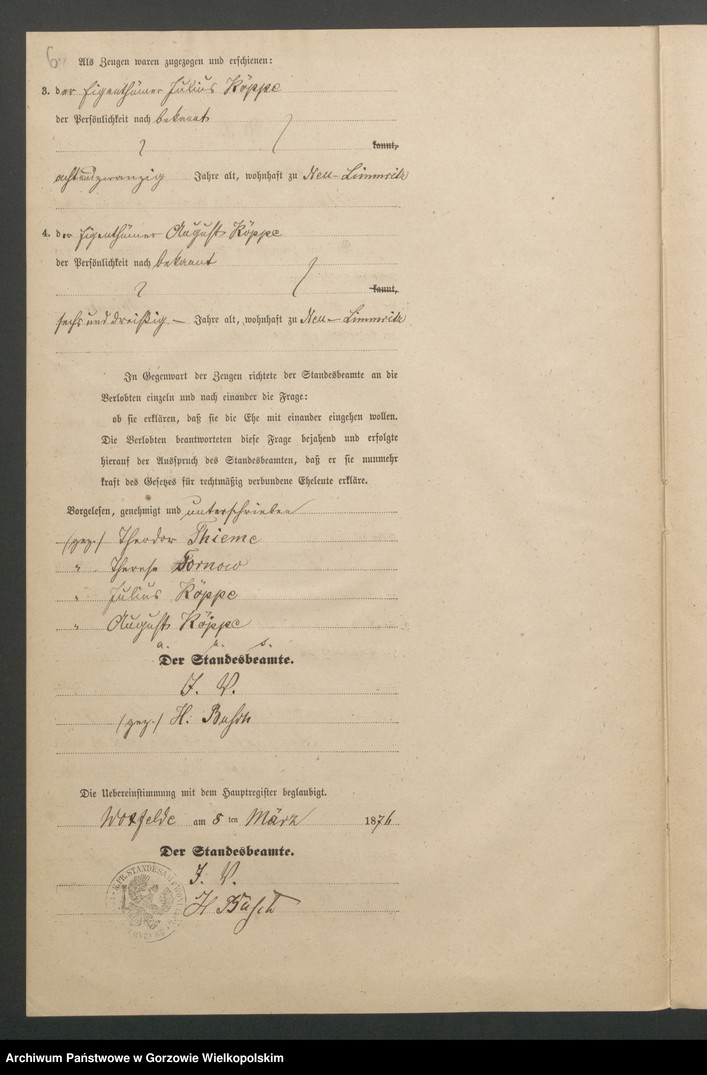 6.
Als Zeugen waren zugezogen und erschienen:
3. der Eigenthümer Julius Köppe
der Persönlichkeit nach bekannt
kannt,
achtundzwanzig Jahre alt, wohnhaft zu Neu-Limmritz
4. der Eigenthümer August Köppe
der Persönlichkeit nach bekannt
kannt,
sechs und dreißig — Jahre alt, wohnhaft zu Neu-Limmritz
In Gegenwart der Zeugen richtete der Standesbeamte an die
Verlobten einzeln und nach einander die Frage:
ob sie erklären, daß sie die Ehe mit einander eingehen wollen.
Die Verlobten beantworteten diese Frage bejahend und erfolgte
hierauf der Ausspruch des Standesbeamten, daß er sie nunmehr
kraft des Gesetzes für rechtmäßig verbundene Eheleute erkläre.
Vorgelesen, genehmigt und unterschrieben
(gez.) Theodor Thieme
" Therese Tornow
" Julius Köppe
" August Köppe
a. u. s.
Der Standesbeamte.
I. V.
(gez.) H. Busch
Die Uebereinstimmung mit dem Hauptregister beglaubigt.
am 5 ten März 1876
Der Standesbeamte.
I. V.
H Busch
Archiwum Państwowe w Gorzowie Wielkopolskim